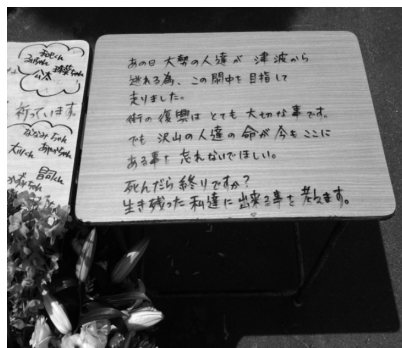 祈っています。
あの日 大勢の人達が 津波から
逃れる為、この閖中を目指して
走りました。
街の復興は とても 大切な事です。
でも 沢山の人達の 命が 今も ここに
ある事を 忘れないでほしい。
死んだら 終りですか？
生き残った 私達に 出来る事を 考えます。